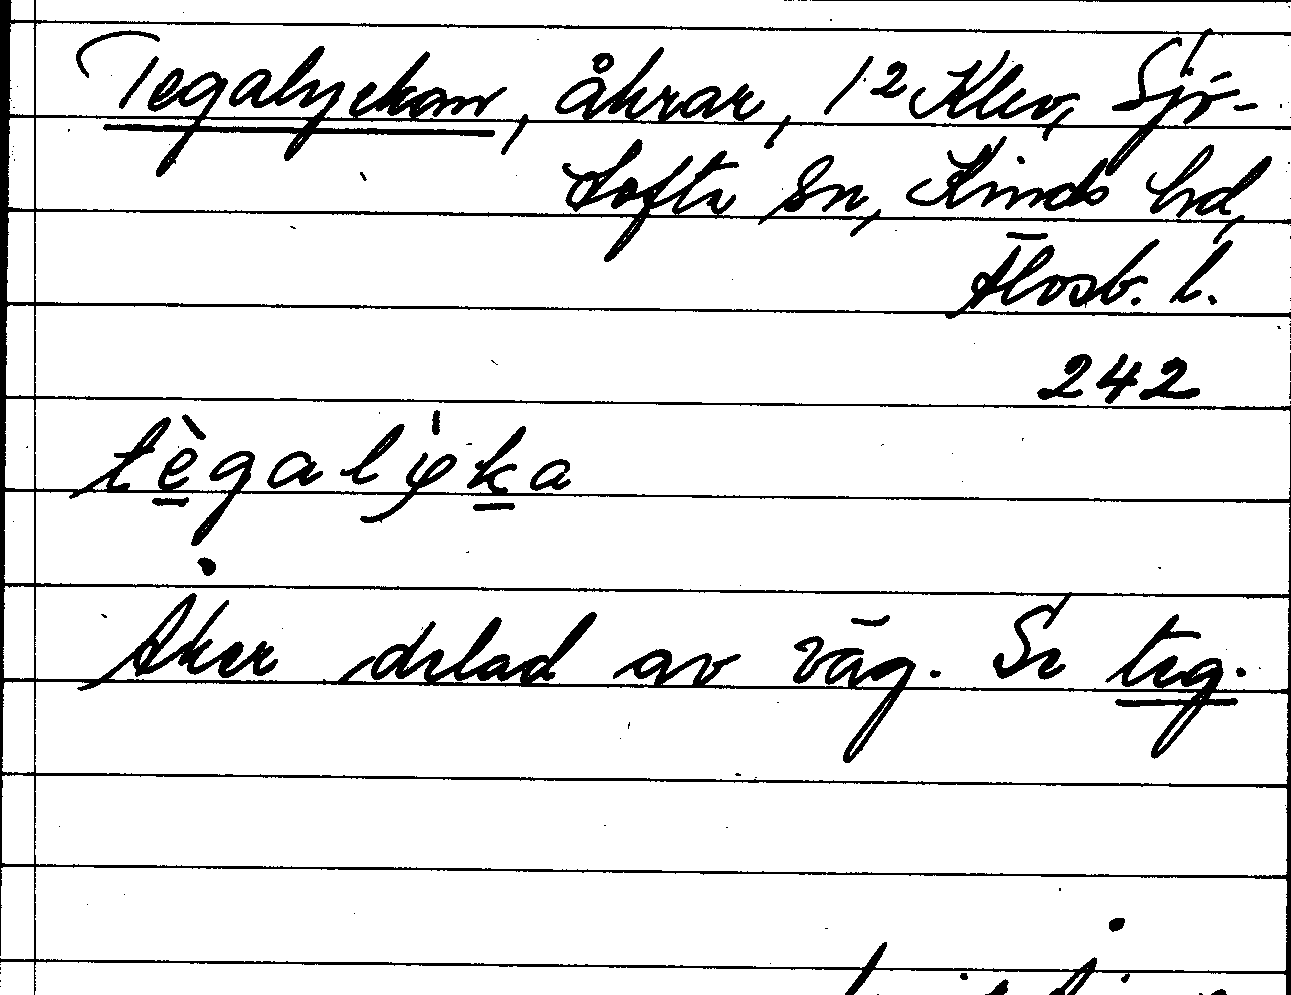 Tegalyckan, åkrar, 1² Klev, Sjö-
tofta sn, Kinds hd,
Älvsb. l.
242
tègalyka
Åker delad av väg. Se teg.